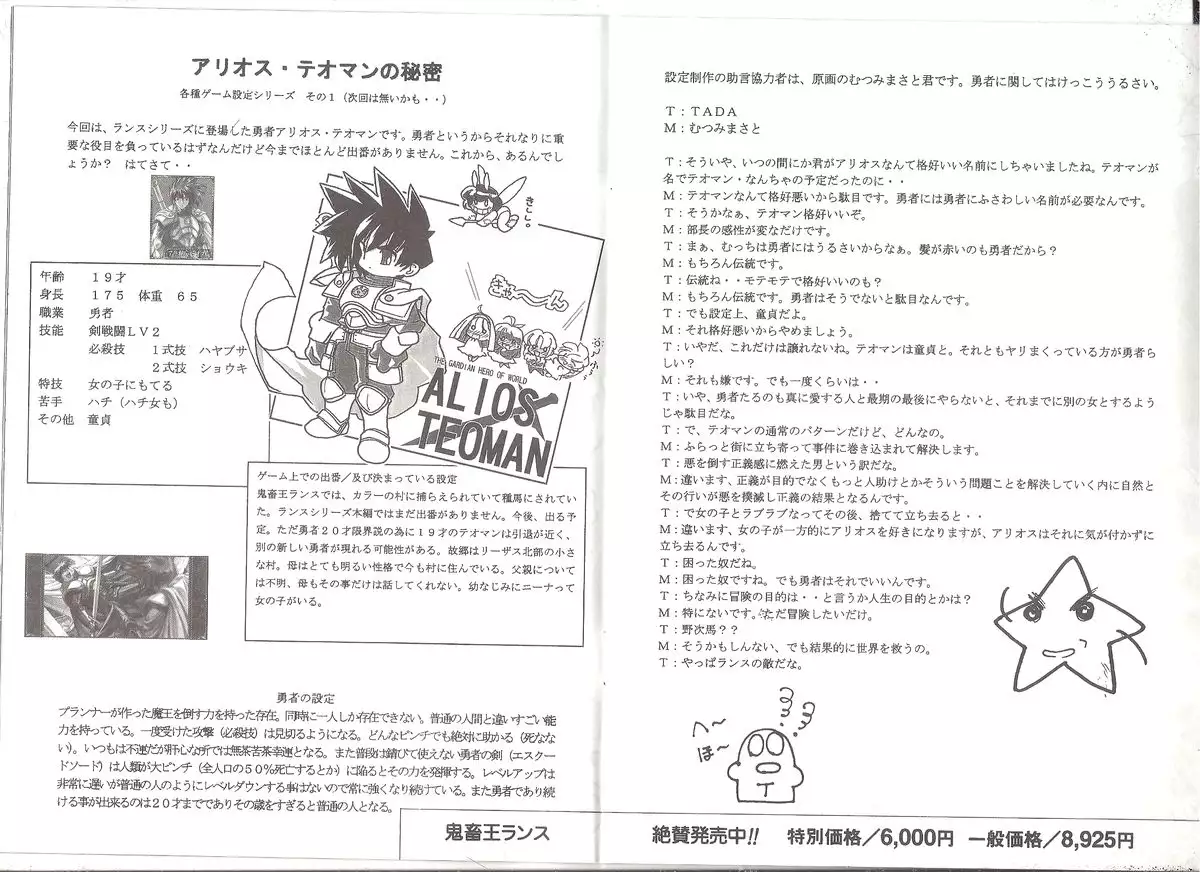 アリオス・テオマンの秘密
各種ゲーム設定シリーズ　その１（次回は無いかも・・）
今回は、ランスシリーズに登場した勇者アリオス・テオマンです。勇者というからそれなりに重
要な役目を負っているはずなんだけど今までほとんど出番がありません。これから、あるんでし
ょうか？　はてさて・・
きこー。
きゃ〜〜ん
年齢　１９才
身長　１７５　体重　６５
職業　勇者
技能　剣戦闘ＬＶ２
必殺技　１式技　ハヤブサ
２式技　ショウキ
特技　女の子にもてる
苦手　ハチ（ハチ女も）
その他　童貞
THE GARDIAN HERO OF WORLD
ALIOS
TEOMAN
ゲーム上での出番／及び決まっている設定
鬼畜王ランスでは、カラーの村に捕らえられていて種馬にされてい
た。ランスシリーズ本編ではまだ出番がありません。今後、出る予
定。ただ勇者２０才限界説の為に１９才のテオマンは引退が近く、
別の新しい勇者が現れる可能性がある。故郷はリーザス北部の小さ
な村。母はとても明るい性格で今も村に住んでいる。父親について
は不明、母もその事だけは話してくれない。幼なじみにニーナって
女の子がいる。
勇者の設定
プランナーが作った魔王を倒す力を持った存在。同時に一人しか存在できない。普通の人間と違いすごい能
力を持っている。一度受けた攻撃（必殺技）は見切るようになる。どんなピンチでも絶対に助かる（死なな
い）。いつもは不運だが肝心な所では無茶苦茶幸運となる。また普段は錆びて使えない勇者の剣（エスクー
ドソード）は人類が大ピンチ（全人口の５０％死亡するとか）に陥るとその力を発揮する。レベルアップは
非常に遅いが普通の人のようにレベルダウンする事はないので常に強くなり続けている。また勇者であり続
ける事が出来るのは２０才まででありその歳をすぎると普通の人となる。
設定制作の助言協力者は、原画のむつみまさと君です。勇者に関してはけっこううるさい。
Ｔ：ＴＡＤＡ
Ｍ：むつみまさと
Ｔ：そういや、いつの間にか君がアリオスなんて格好いい名前にしちゃいましたね。テオマンが
名でテオマン・なんちゃの予定だったのに・・
Ｍ：テオマンなんて格好悪いから駄目です。勇者には勇者にふさわしい名前が必要なんです。
Ｔ：そうかなぁ、テオマン格好いいぞ。
Ｍ：部長の感性が変なだけです。
Ｔ：まぁ、むっちは勇者にはうるさいからなぁ。髪が赤いのも勇者だから？
Ｍ：もちろん伝統です。
Ｔ：伝統ね・・モテモテで格好いいのも？
Ｍ：もちろん伝統です。勇者はそうでないと駄目なんです。
Ｔ：でも設定上、童貞だよ。
Ｍ：それ格好悪いからやめましょう。
Ｔ：いやだ、これだけは譲れないね。テオマンは童貞と。それともヤリまくっている方が勇者ら
しい？
Ｍ：それも嫌です。でも一度くらいは・・
Ｔ：いや、勇者たるのも真に愛する人と最期の最後にやらないと、それまでに別の女とするよう
じゃ駄目だな。
Ｔ：で、テオマンの通常のパターンだけど、どんなの。
Ｍ：ふらっと街に立ち寄って事件に巻き込まれて解決します。
Ｔ：悪を倒す正義感に燃えた男という訳だな。
Ｍ：違います、正義が目的でなくもっと人助けとかそういう問題ことを解決していく内に自然と
その行いが悪を撲滅し正義の結果となるんです。
Ｔ：で女の子とラブラブなってその後、捨てて立ち去ると・・
Ｍ：違います、女の子が一方的にアリオスを好きになりますが、アリオスはそれに気が付かずに
立ち去るんです。
Ｔ：困った奴だね。
Ｍ：困った奴ですね。でも勇者はそれでいいんです。
Ｔ：ちなみに冒険の目的は・・と言うか人生の目的とかは？
Ｍ：特にないです。ただ冒険したいだけ。
Ｔ：野次馬？？
Ｍ：そうかもしんない、でも結果的に世界を救うの。
Ｔ：やっぱランスの敵だな。
へ〜
ほ〜
T
鬼畜王ランス　絶賛発売中!!　特別価格／6,000円　一般価格／8,925円